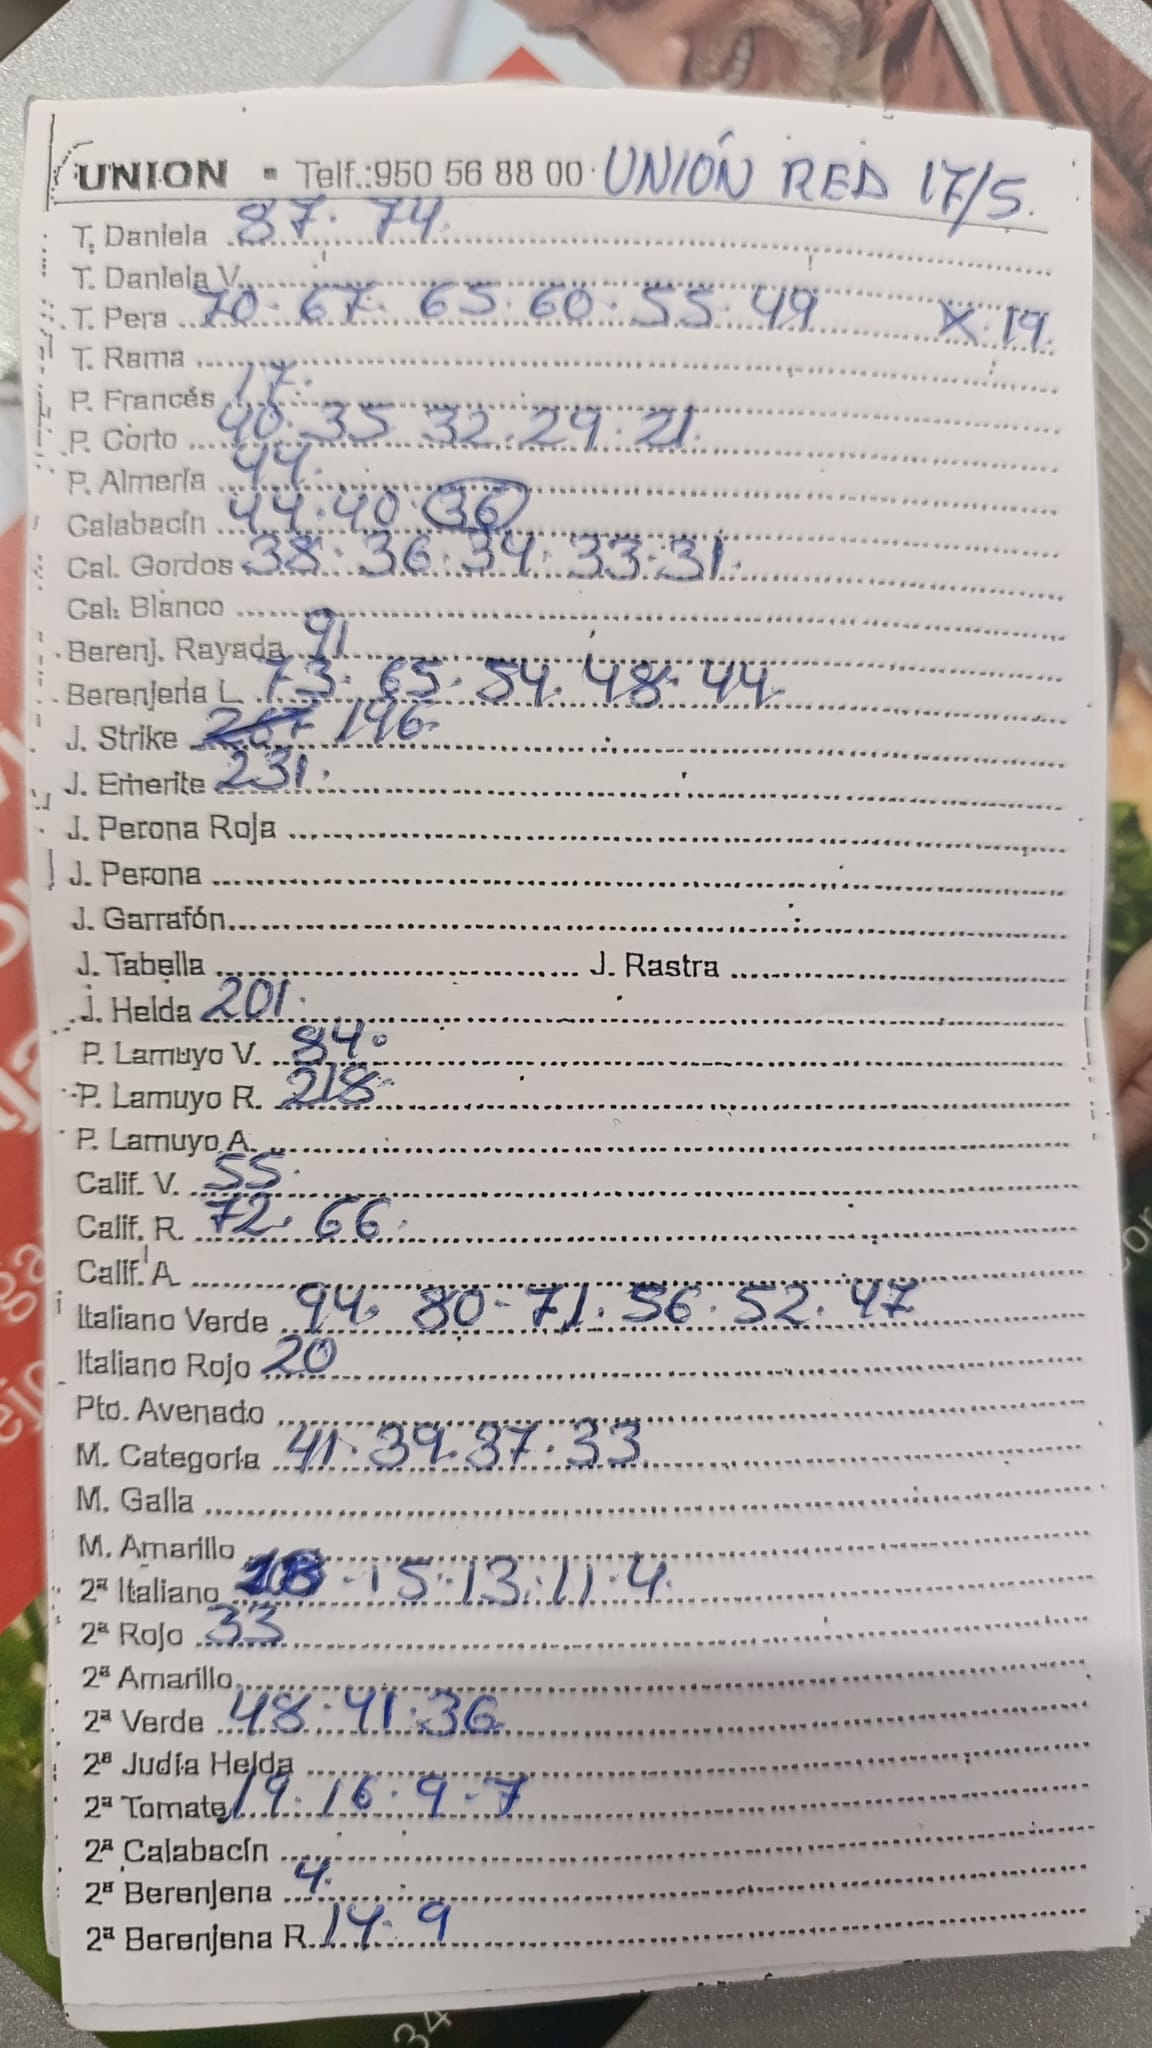 UNION - Telf.:950 56 88 00 UNIÓN RED 17/5.
T. Daniela 87. 74.
T. Daniela V.
T. Pera 70. 67. 65. 60. 55. 49 X. 19.
T. Rama
P. Francés 17.
P. Corto 40. 35 32. 29. 21.
P. Almería 44.
Calabacín 44. 40. 36
Cal. Gordos 38. 36. 34. 33. 31.
Cal. Blanco
Berenj. Rayada 91
Berenjena L. 73. 65. 54. 48. 44.
J. Strike 267 196.
J. Emerite 231.
J. Perona Roja
J. Perona
J. Garrafón
J. Tabella J. Rastra
J. Helda 201.
P. Lamuyo V. 84.
P. Lamuyo R. 218
P. Lamuyo A.
Calif. V. 55.
Calif. R. 72. 66.
Calif. A
Italiano Verde 94. 80- 71. 56. 52. 47
Italiano Rojo 20
Pto. Avenado
M. Categoría 41. 39. 37. 33.
M. Galia
M. Amarillo
2ª Italiano -15.13.11.4.
2ª Rojo 33
2ª Amarillo
2ª Verde 48. 41. 36
2ª Judía Helda
2ª Tomate 19. 16. 9-7
2ª Calabacín
2ª Berenjena 4.
2ª Berenjena R. 14. 9
34